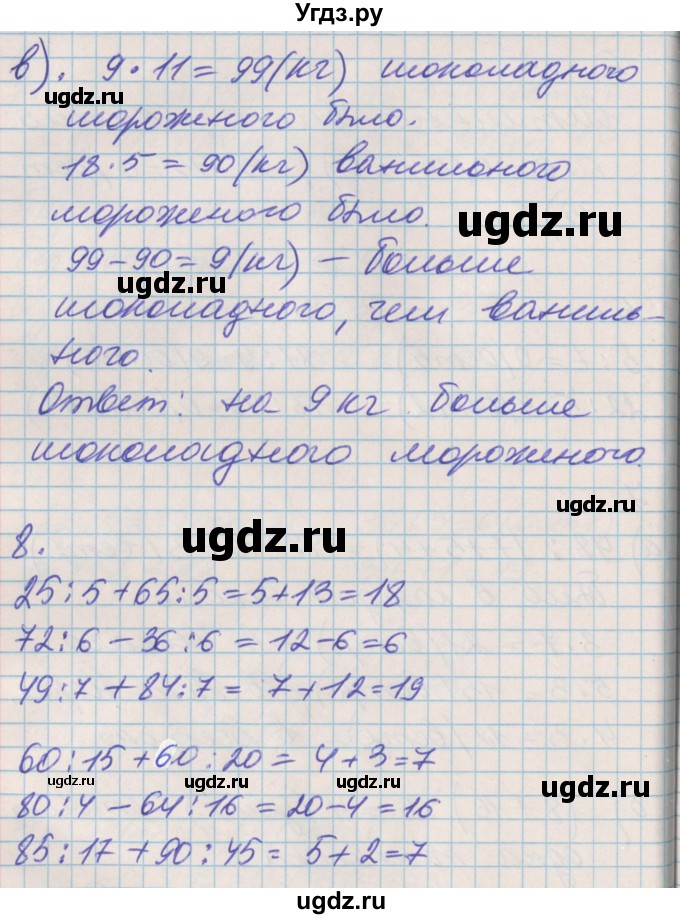 Угдз.ру
в). 9 · 11 = 99 (кг) шоколадного
ugdz.ru
мороженого было.
ugdz.ru
18 · 5 = 90 (кг) ванильного
мороженого было.
ugdz.ru
99 - 90 = 9 (кг) - больше
ugdz.ru
шоколадного, чем ваниль-
ного.
Ответ: на 9 кг больше
шоколадного мороженого.
ugdz.ru
8.
ugdz.ru
25 : 5 + 65 : 5 = 5 + 13 = 18
72 : 6 - 36 : 6 = 12 - 6 = 6
49 : 7 + 84 : 7 = 7 + 12 = 19
60 : 15 + 60 : 20 = 4 + 3 = 7
ugdz.ru
ugdz.ru
80 : 4 - 64 : 16 = 20 - 4 = 16
85 : 17 + 90 : 45 = 5 + 2 = 7
ugdz.ru
ugdz.ru